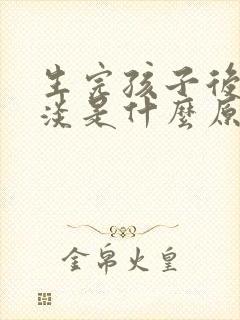 生完孩子後
淡是什麼原
金帛火皇